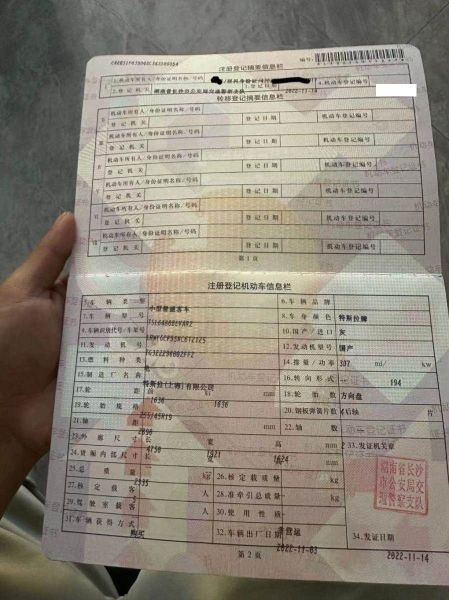 注册登记摘要信息栏
1.机动车所有人/身份证明名称/号码
2.登记机关 湖南省长沙市公安局交通警察支队 3.登记日期 2022-11-14 4.机动车登记编号
转移登记摘要信息栏
机动车所有人/身份证明名称/号码
登记机关 登记日期 机动车登记编号
机动车所有人/身份证明名称/号码
登记机关 登记日期 机动车登记编号
机动车所有人/身份证明名称/号码
登记机关 登记日期 机动车登记编号
机动车所有人/身份证明名称/号码
登记机关 登记日期 机动车登记编号
机动车所有人/身份证明名称/号码
登记机关 登记日期 机动车登记编号
第1页
注册登记机动车信息栏
5.车辆类型 小型普通客车 6.车辆品牌 特斯拉牌
7.车辆型号 8.车身颜色 灰
9.车辆识别代号/车架号 10.国产/进口 国产
11.发动机号 12.发动机型号
13.燃料种类 14.排量/功率 ml/ 194 kw
15.制造厂名称 特斯拉(上海)有限公司 16.转向形式 方向盘
17.轮距 前 1636 后 1636 mm 18.轮胎数 4
19.轮胎规格 255/45R19 20.钢板弹簧片数 后轴 片
21.轴距 mm 22.轴数 2
23.外廓尺寸 长 4750 宽 1921 高 1624 mm 33.发证机关章
24.货厢内部尺寸 长 宽 高 mm
25.总质量 kg 26.核定载质量 kg
27.核定载客 人 28.准牵引总质量 kg
29.驾驶室载客 人 30.使用性质 非营运
31.车辆获得方式 购买 32.车辆出厂日期 2022-11-03 34.发证日期 2022-11-14
湖南省长沙市公安局交通警察支队
第2页